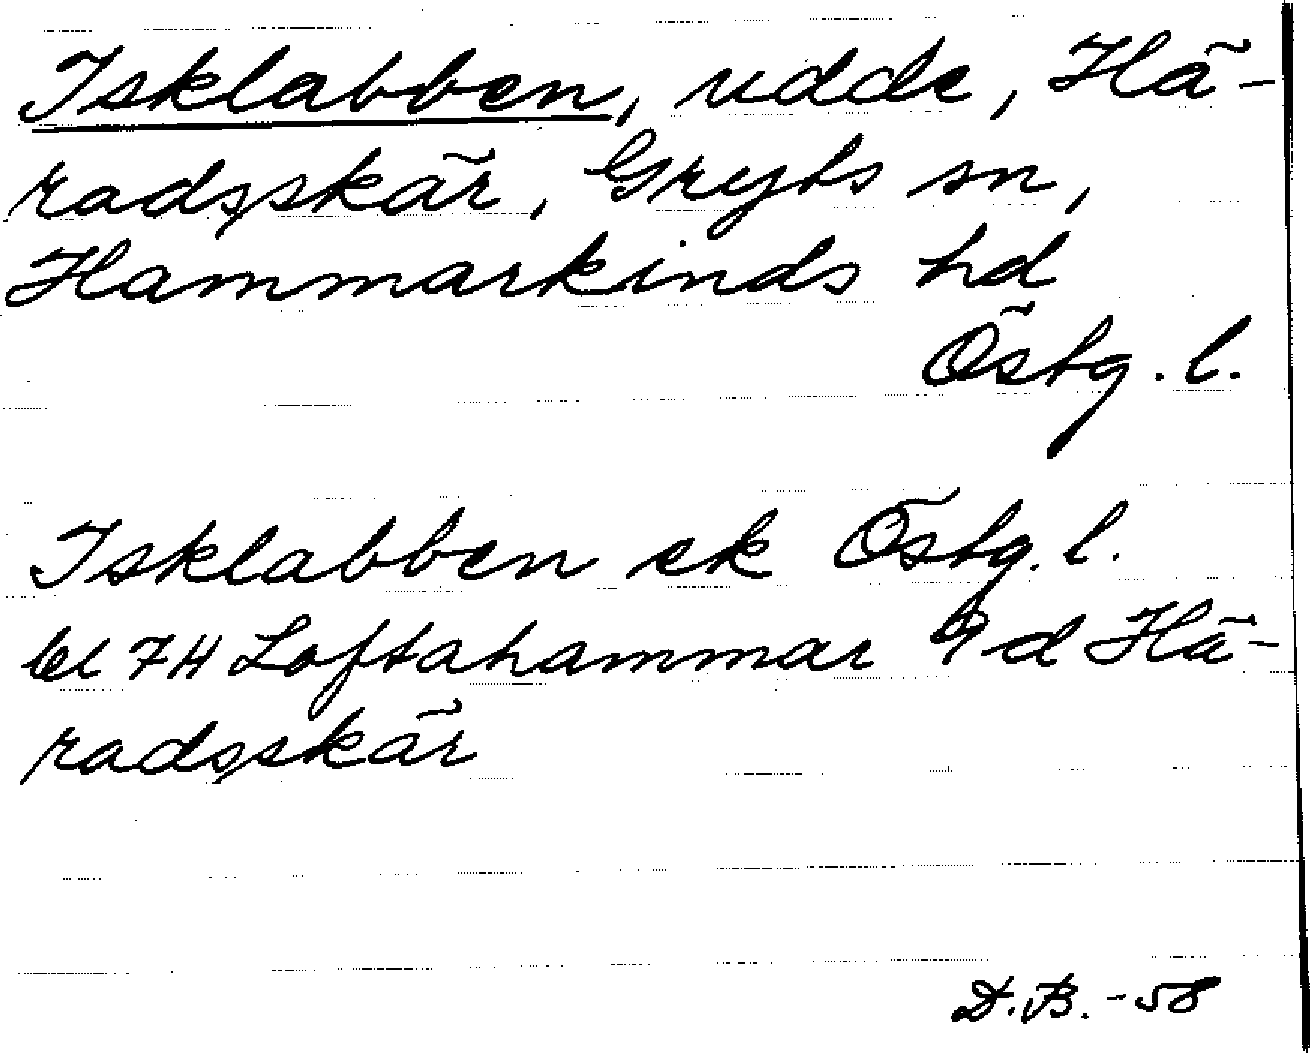 Isklabben, udde, Hä-
radsskär, Gryts sn,
Hammarkinds hd
Östg. l.
Isklabben ek Östg. l.
bl 7H Loftahammar 9d Hä-
radsskär
D.B. -58